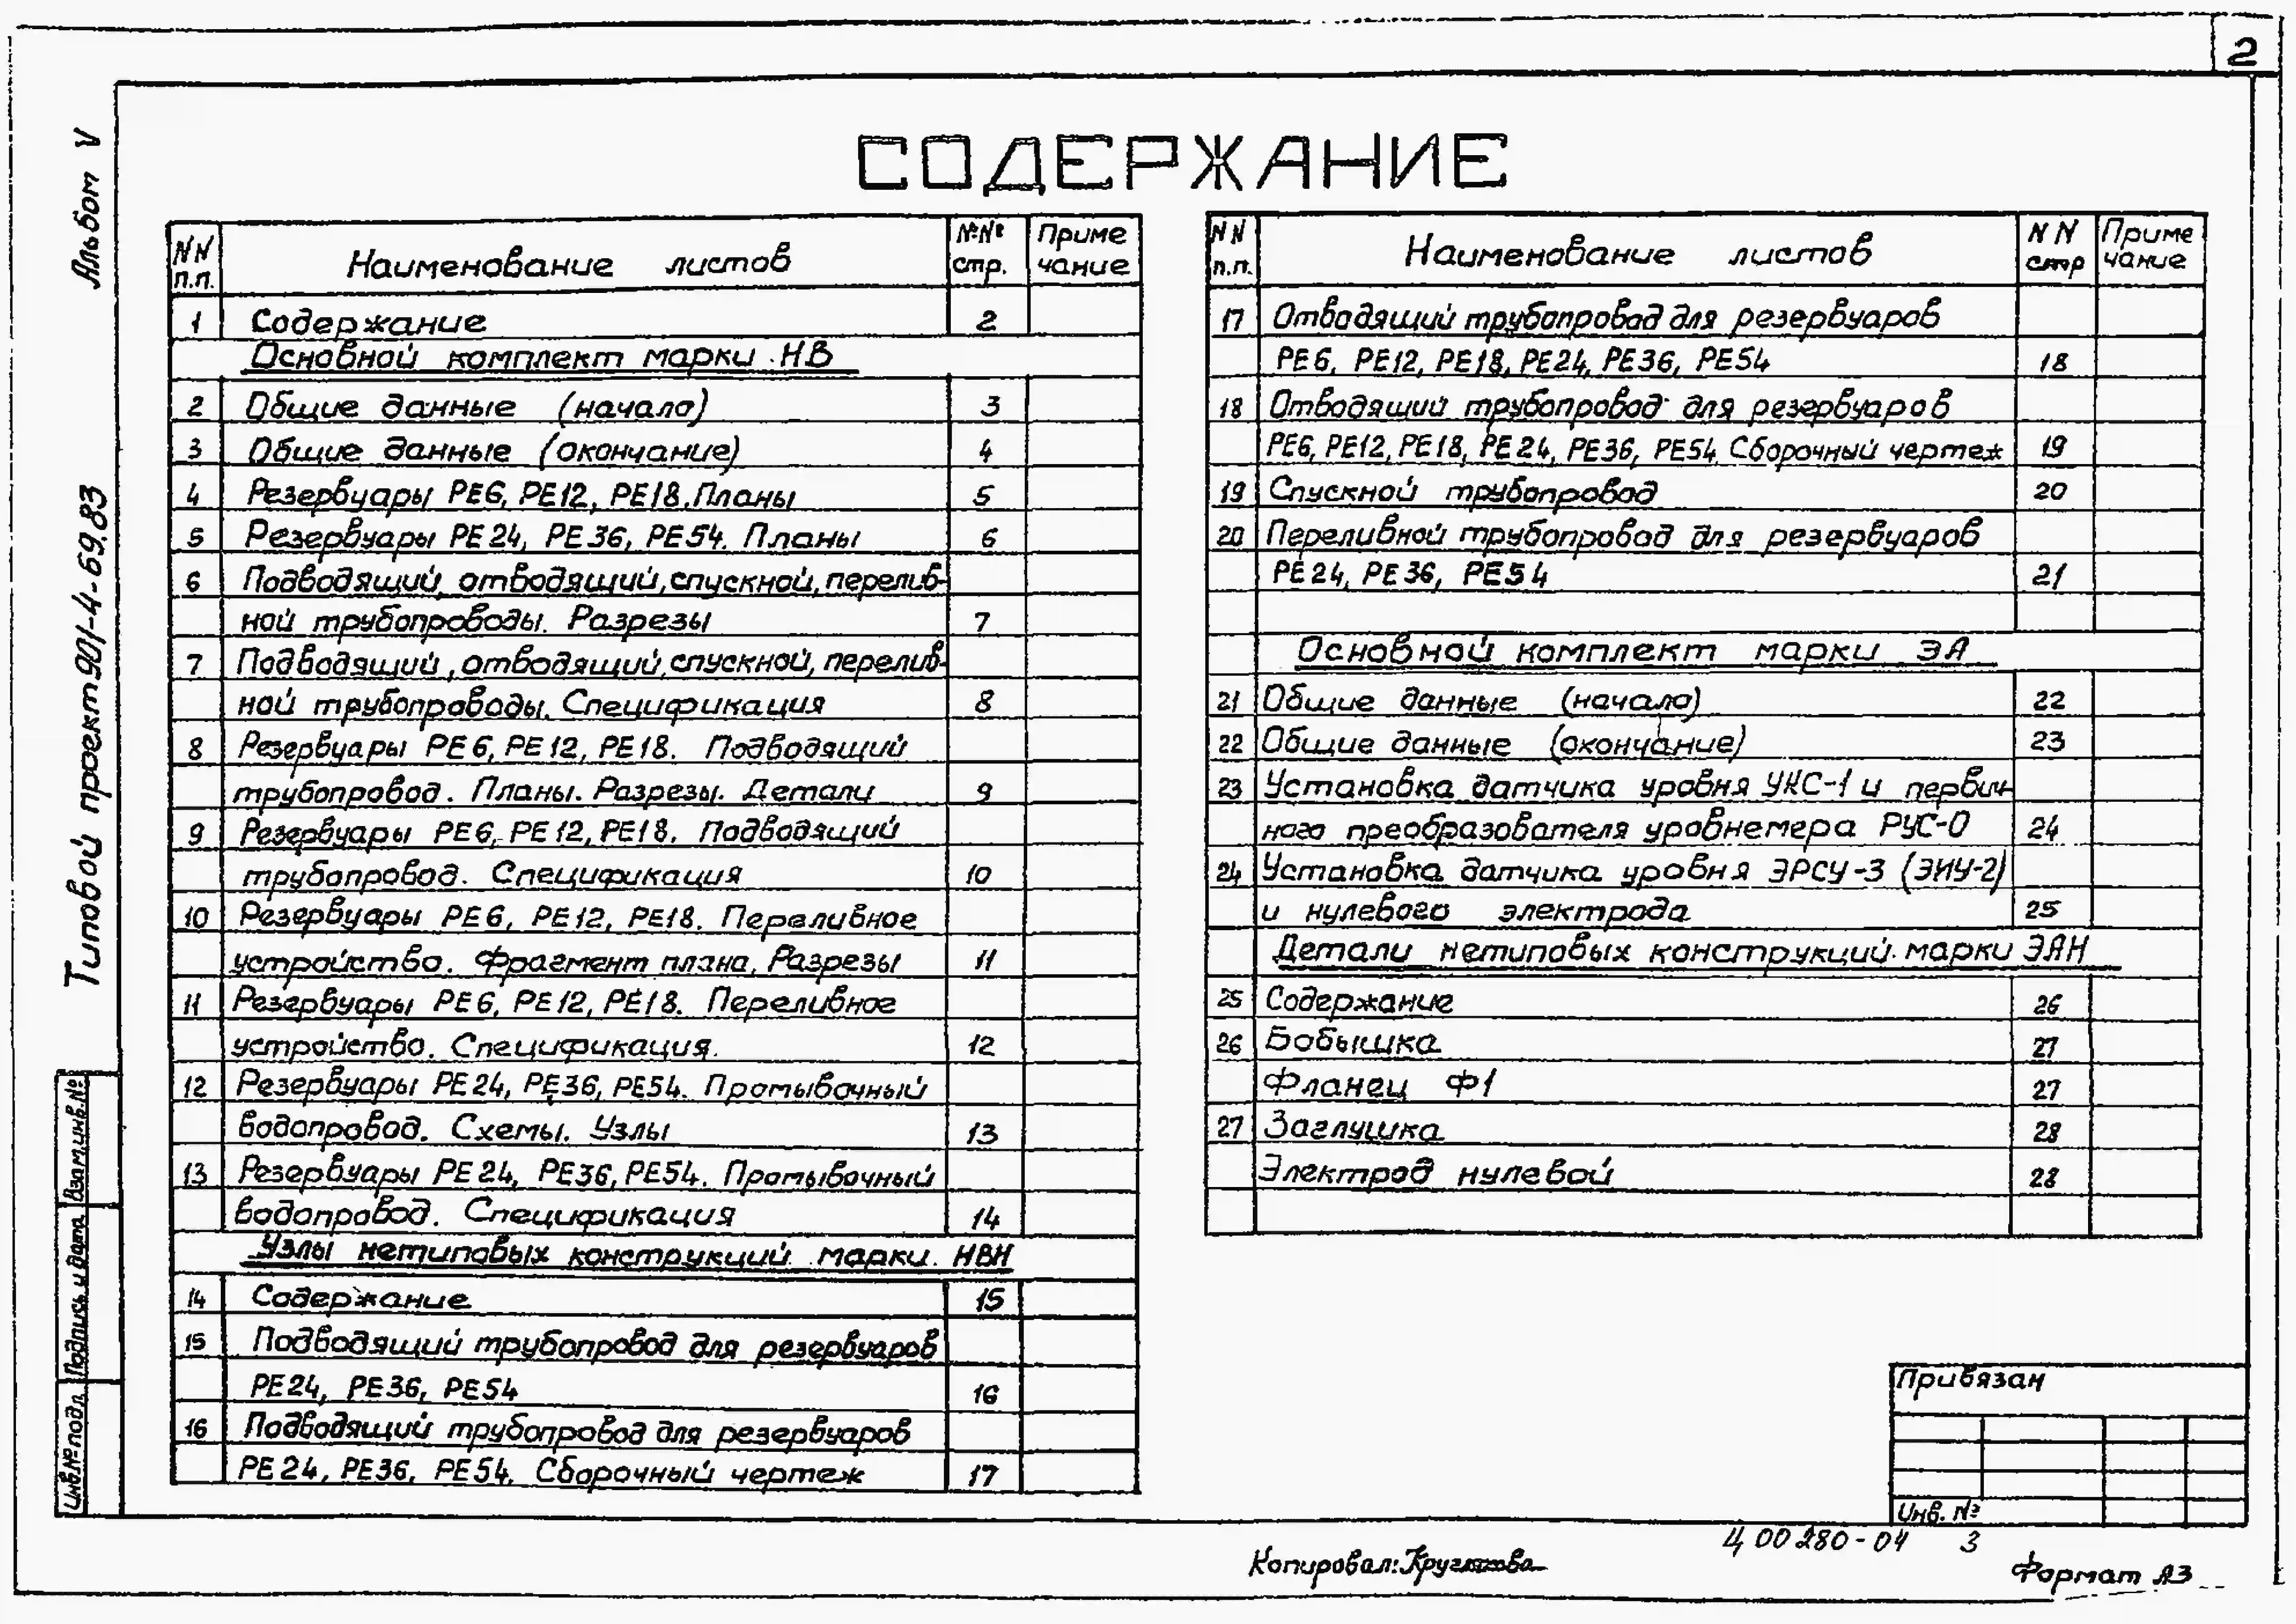 2
Альбом V
Типовой проект 901-4-69.83
СОДЕРЖАНИЕ
NN п.п. Наименование листов №№ стр. Приме чание
1 Содержание 2
Основной комплект марки НВ
2 Общие данные (начало) 3
3 Общие данные (окончание) 4
4 Резервуары РЕ6, РЕ12, РЕ18. Планы 5
5 Резервуары РЕ24, РЕ36, РЕ54. Планы 6
6 Подводящий, отводящий, спускной, перелив-
ной трубопроводы. Разрезы 7
7 Подводящий, отводящий, спускной, перелив-
ной трубопроводы. Спецификация 8
8 Резервуары РЕ6, РЕ12, РЕ18. Подводящий
трубопровод. Планы. Разрезы. Детали 9
9 Резервуары РЕ6, РЕ12, РЕ18. Подводящий
трубопровод. Спецификация 10
10 Резервуары РЕ6, РЕ12, РЕ18. Переливное
устройство. Фрагмент плана. Разрезы 11
11 Резервуары РЕ6, РЕ12, РЕ18. Переливное
устройство. Спецификация. 12
12 Резервуары РЕ24, РЕ36, РЕ54. Промывочный
водопровод. Схемы. Узлы 13
13 Резервуары РЕ24, РЕ36, РЕ54. Промывочный
водопровод. Спецификация 14
Узлы нетиповых конструкций марки НВН
14 Содержание 15
15 Подводящий трубопровод для резервуаров
РЕ24, РЕ36, РЕ54 16
16 Подводящий трубопровод для резервуаров
РЕ24, РЕ36, РЕ54. Сборочный чертеж 17
NN п.п. Наименование листов NN стр Приме чание
17 Отводящий трубопровод для резервуаров
РЕ6, РЕ12, РЕ18, РЕ24, РЕ36, РЕ54 18
18 Отводящий трубопровод для резервуаров
РЕ6, РЕ12, РЕ18, РЕ24, РЕ36, РЕ54. Сборочный чертеж 19
19 Спускной трубопровод 20
20 Переливной трубопровод для резервуаров
РЕ24, РЕ36, РЕ54 21
Основной комплект марки ЭА
21 Общие данные (начало) 22
22 Общие данные (окончание) 23
23 Установка датчика уровня УКС-1 и первич-
ного преобразователя уровнемера РУС-0 24
24 Установка датчика уровня ЭРСУ-3 (ЭИУ-2)
и нулевого электрода 25
Детали нетиповых конструкций марки ЭАН
25 Содержание 26
26 Бобышка 27
Фланец Ф1 27
27 Заглушка 28
Электрод нулевой 28
Взам.инв.№
Подпись и дата
Инв.№ подл.
Привязан
Инв. №
Ц 00280-04 3
Копировал: Круглякова
Формат А3